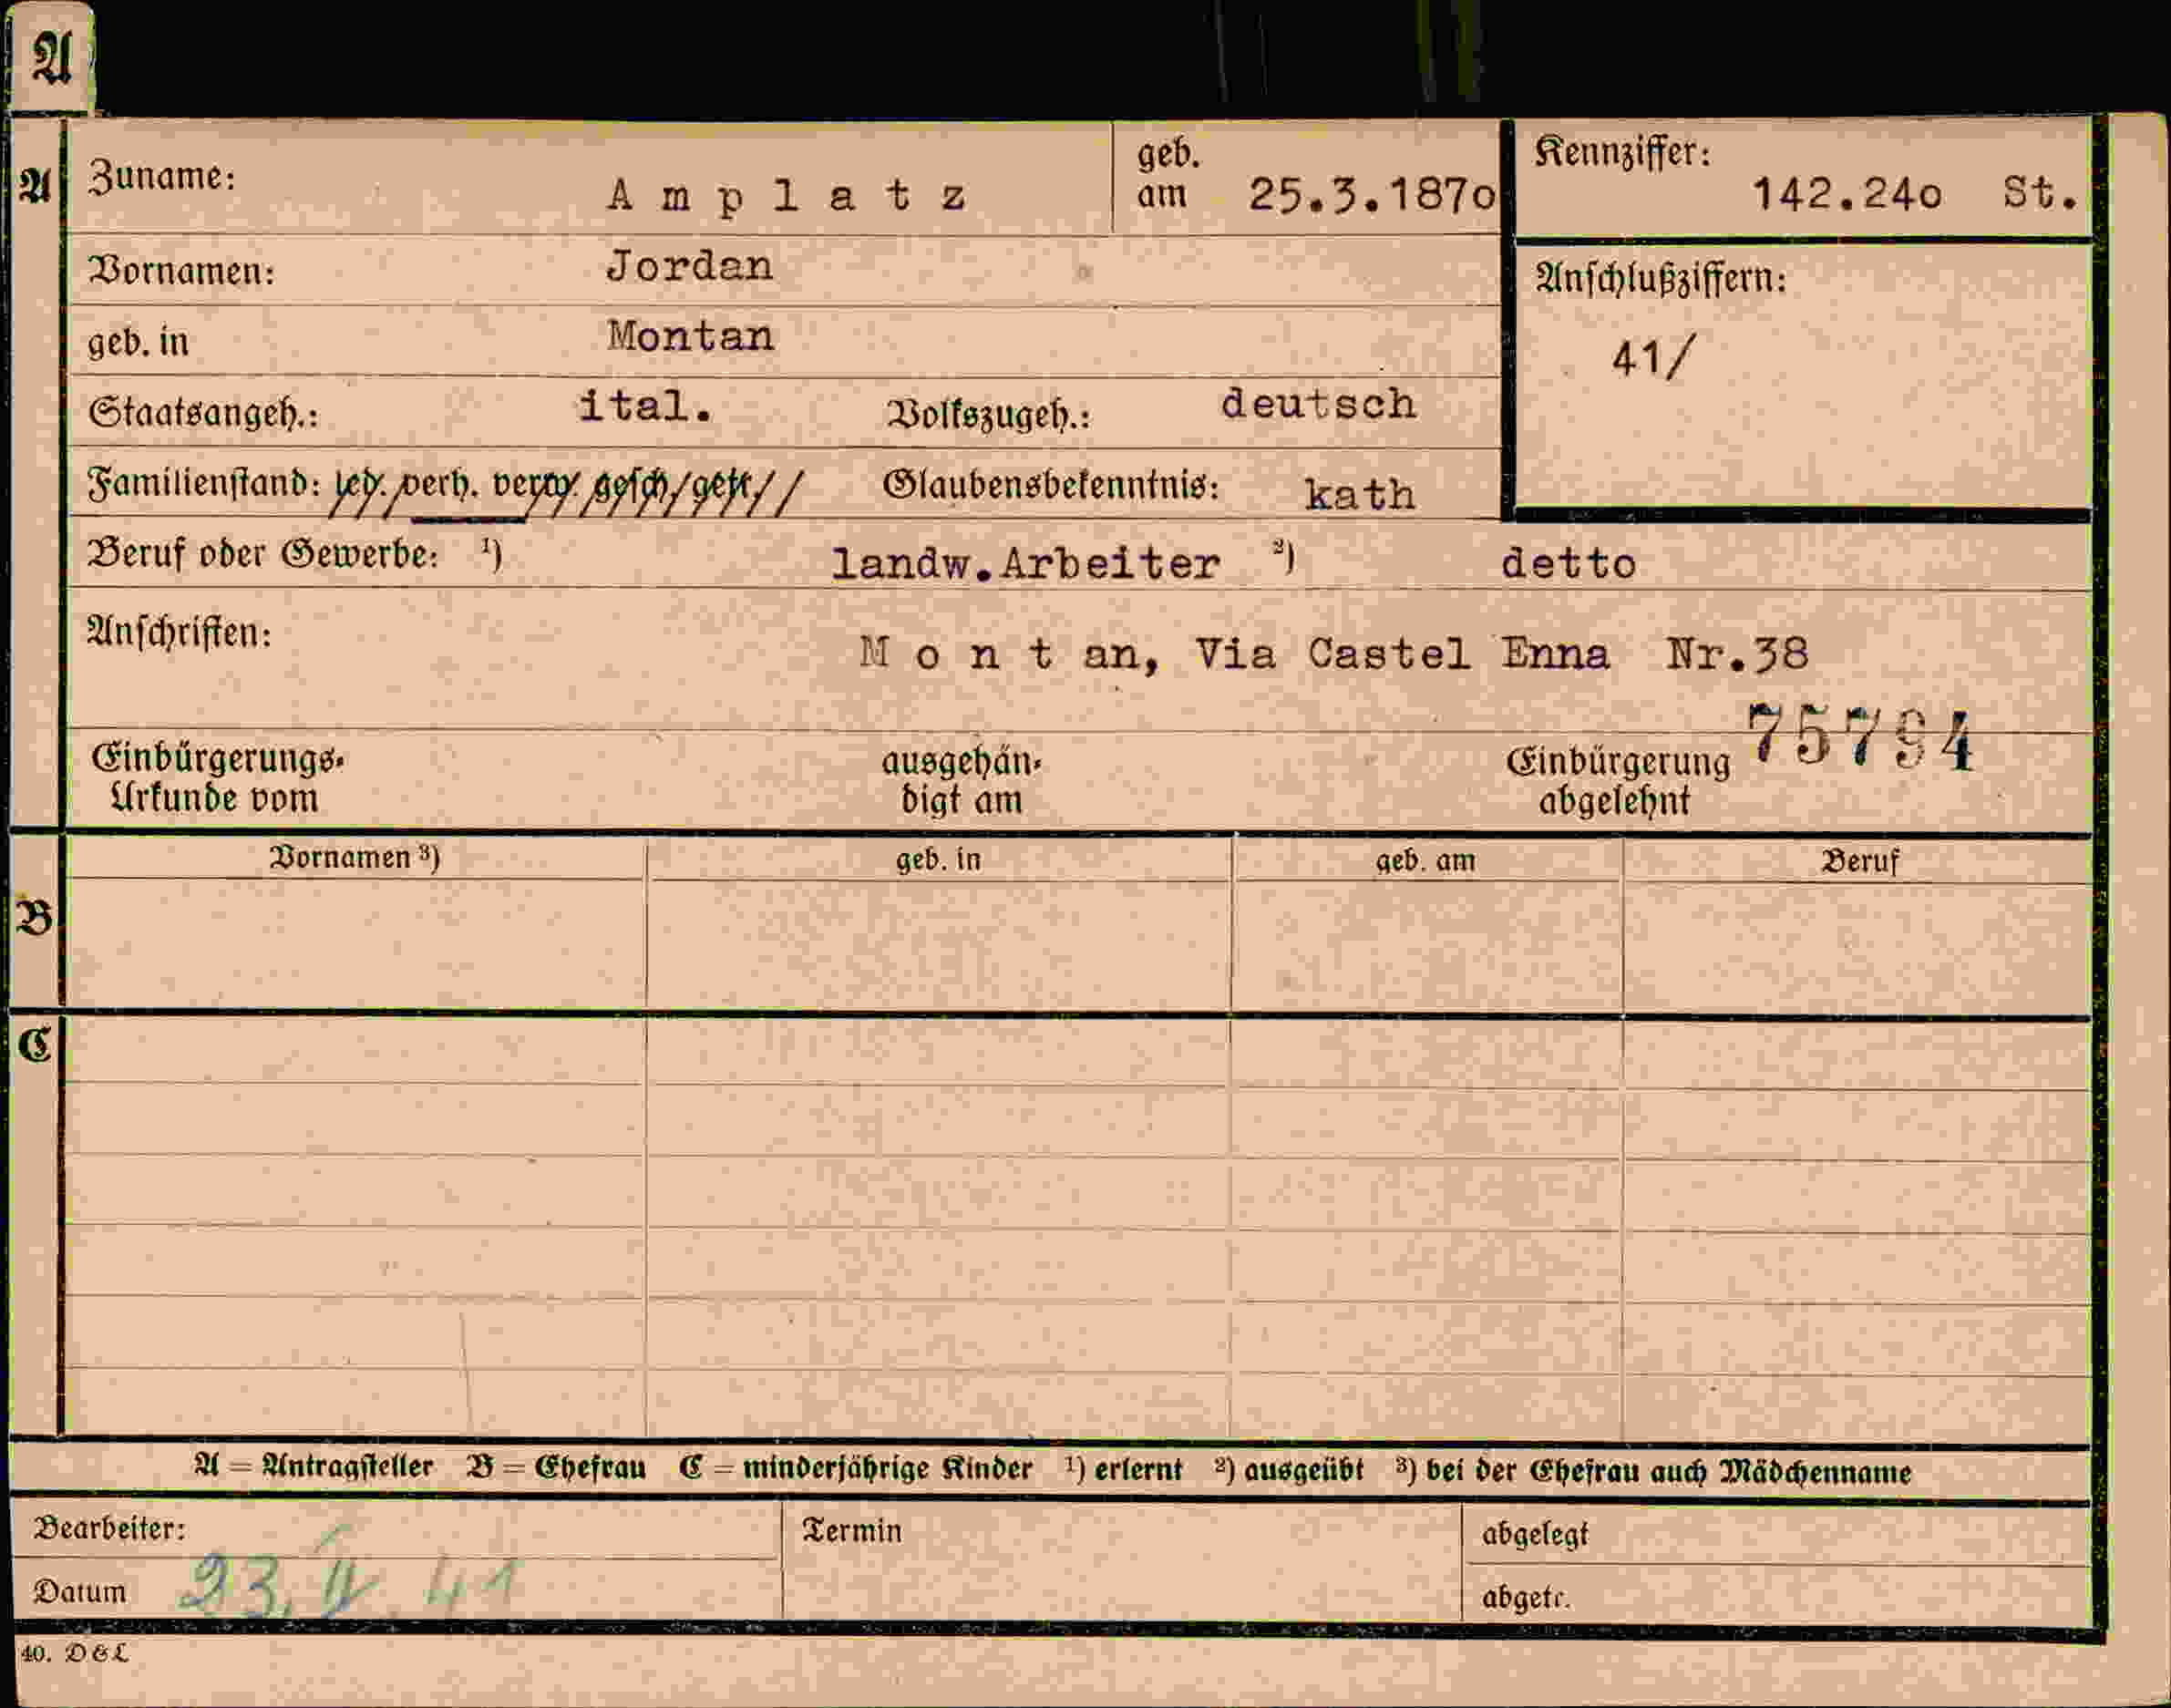 A
A Zuname: Amplatz geb. am 25.3.187o Kennziffer: 142.24o St.
Vornamen: Jordan Anschlußziffern:
geb. in Montan 41/
Staatsangeh.: ital. Volkszugeh.: deutsch
Familienstand: led. verh. verw. gesch. getr. Glaubensbekenntnis: kath
Beruf oder Gewerbe: ¹) landw.Arbeiter ²) detto
Anschriften: Montan, Via Castel Enna Nr.38
75794
Einbürgerungs- ausgehän- Einbürgerung
Urkunde vom digt am abgelehnt
Vornamen ³) geb. in geb. am Beruf
B
C
A = Antragsteller B = Ehefrau C = minderjährige Kinder ¹) erlernt ²) ausgeübt ³) bei der Ehefrau auch Mädchenname
Bearbeiter: Termin abgelegt
Datum 23. 41 abgetr.
40. D & L